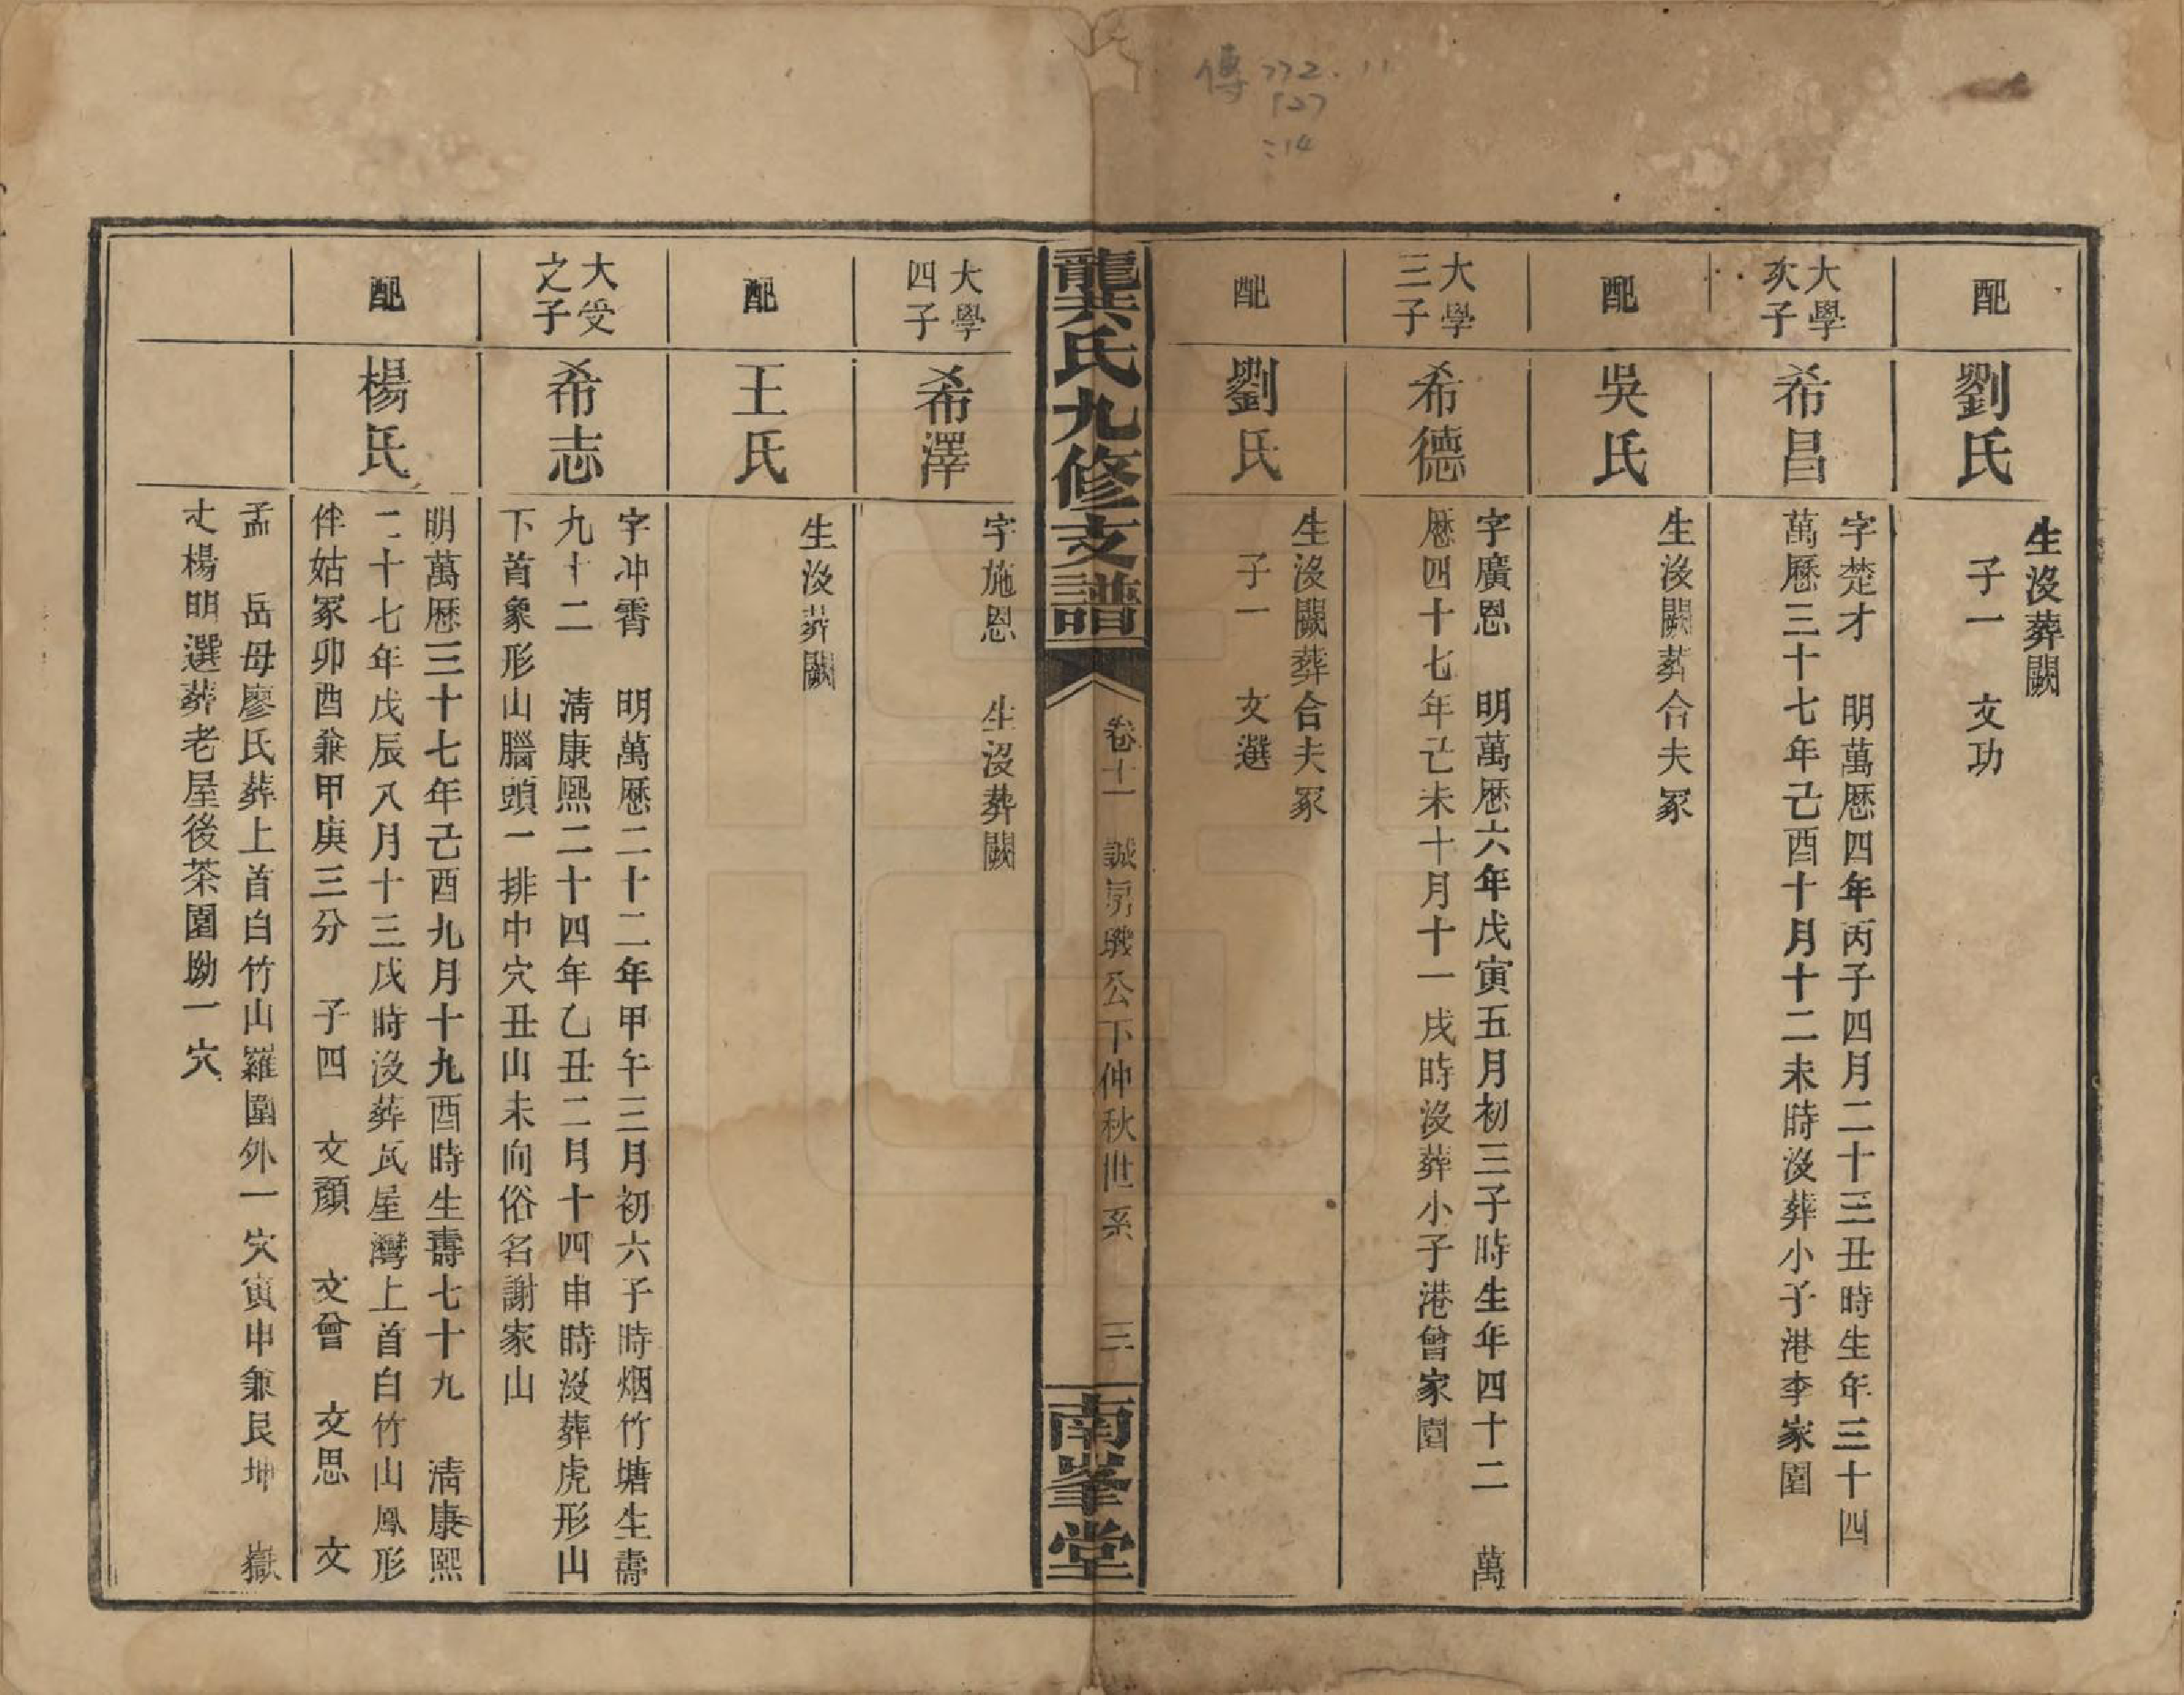 傳 772.11
527
:14
配
劉氏
生沒葬闕
子一 文功
大學
次子
希昌
字楚才 明萬厯四年丙子四月二十三丑時生年三十四
萬厯三十七年己酉十月十二未時沒葬小子港李家園
配
吳氏
生沒闕葬合夫冢
大學
三子
希德
字廣恩 明萬厯六年戊寅五月初三子時生年四十二 萬
厯四十七年己未十月十一戌時沒葬小子港曾家園
配
劉氏
生沒闕葬合夫冢
子一 文選
龔氏九修支譜
卷十一 誠 公下仲秋世系 三
南峯堂
大學
四子
希澤
字施恩 生沒葬闕
配
王氏
生沒葬闕
大受
之子
希志
字冲霄 明萬厯二十二年甲午三月初六子時烟竹塘生壽
九十二 清康熙二十四年乙丑二月十四申時沒葬虎形山
下首象形山腦頭一排中穴丑山未向俗名謝家山
配
楊氏
明萬厯三十七年己酉九月十九酉時生壽七十九 清康熙
二十七年戊辰八月十三戌時沒葬瓦屋灣上首白竹山鳳形
伴姑冢卯酉兼甲庚三分 子四 文顏 文曾 文思 文
孟 岳母廖氏葬上首白竹山羅圍外一穴寅申兼艮坤 嶽
丈楊明選葬老屋後茶園坳一穴